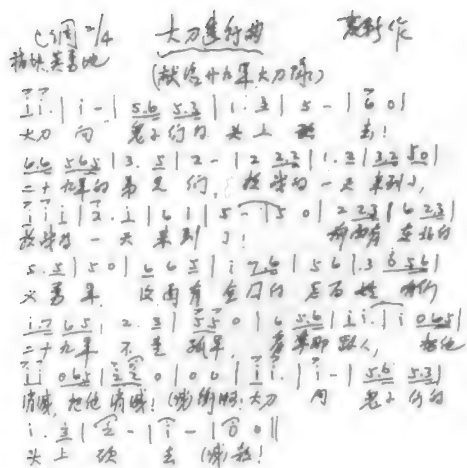 C调 2/4 大刀進行曲 麦新作
英勇地
(献给廿九军大刀队)
i i. | i - | 5.6 5.3 | i . 3 | 5 - | 6 0 |
大刀 向 鬼子们的 头上 砍 去!
6.6 5 6 5 | 3 . 5 | 2 - | 2 2.3 | 1 . 2 | 3.2 5 0 |
二十九军的 弟兄 们, 抗战的 一天 来到了,
i i i | 2 . i | 6 i | 5 - | 5 0 | 2 2 3 | 6 2 3 |
抗战的 一天 来到 了! 前面有 东北的
5 . 5 | 5 0 | 6 6 5 | i 7.6 | 5 6 | . 3 6 5 6 |
义勇军, 后面有 全国的 老百姓 咱们
i.7 6 5 | 2 . 3 | 5 5 0 | 6 5.6 | i i. | i 0 6 5 |
二十九军 不是 孤军, 看準那 敌人, 把他
i i 0 6 5 | 2 2 0 | 0 0 | i i. | i - | 5.6 5.3 |
消滅, 把他 消滅! (喊) 大刀 向 鬼子们的
i . 3 | 2 - | i - | 0 0 ||
头上 砍 去 (喊) 殺!